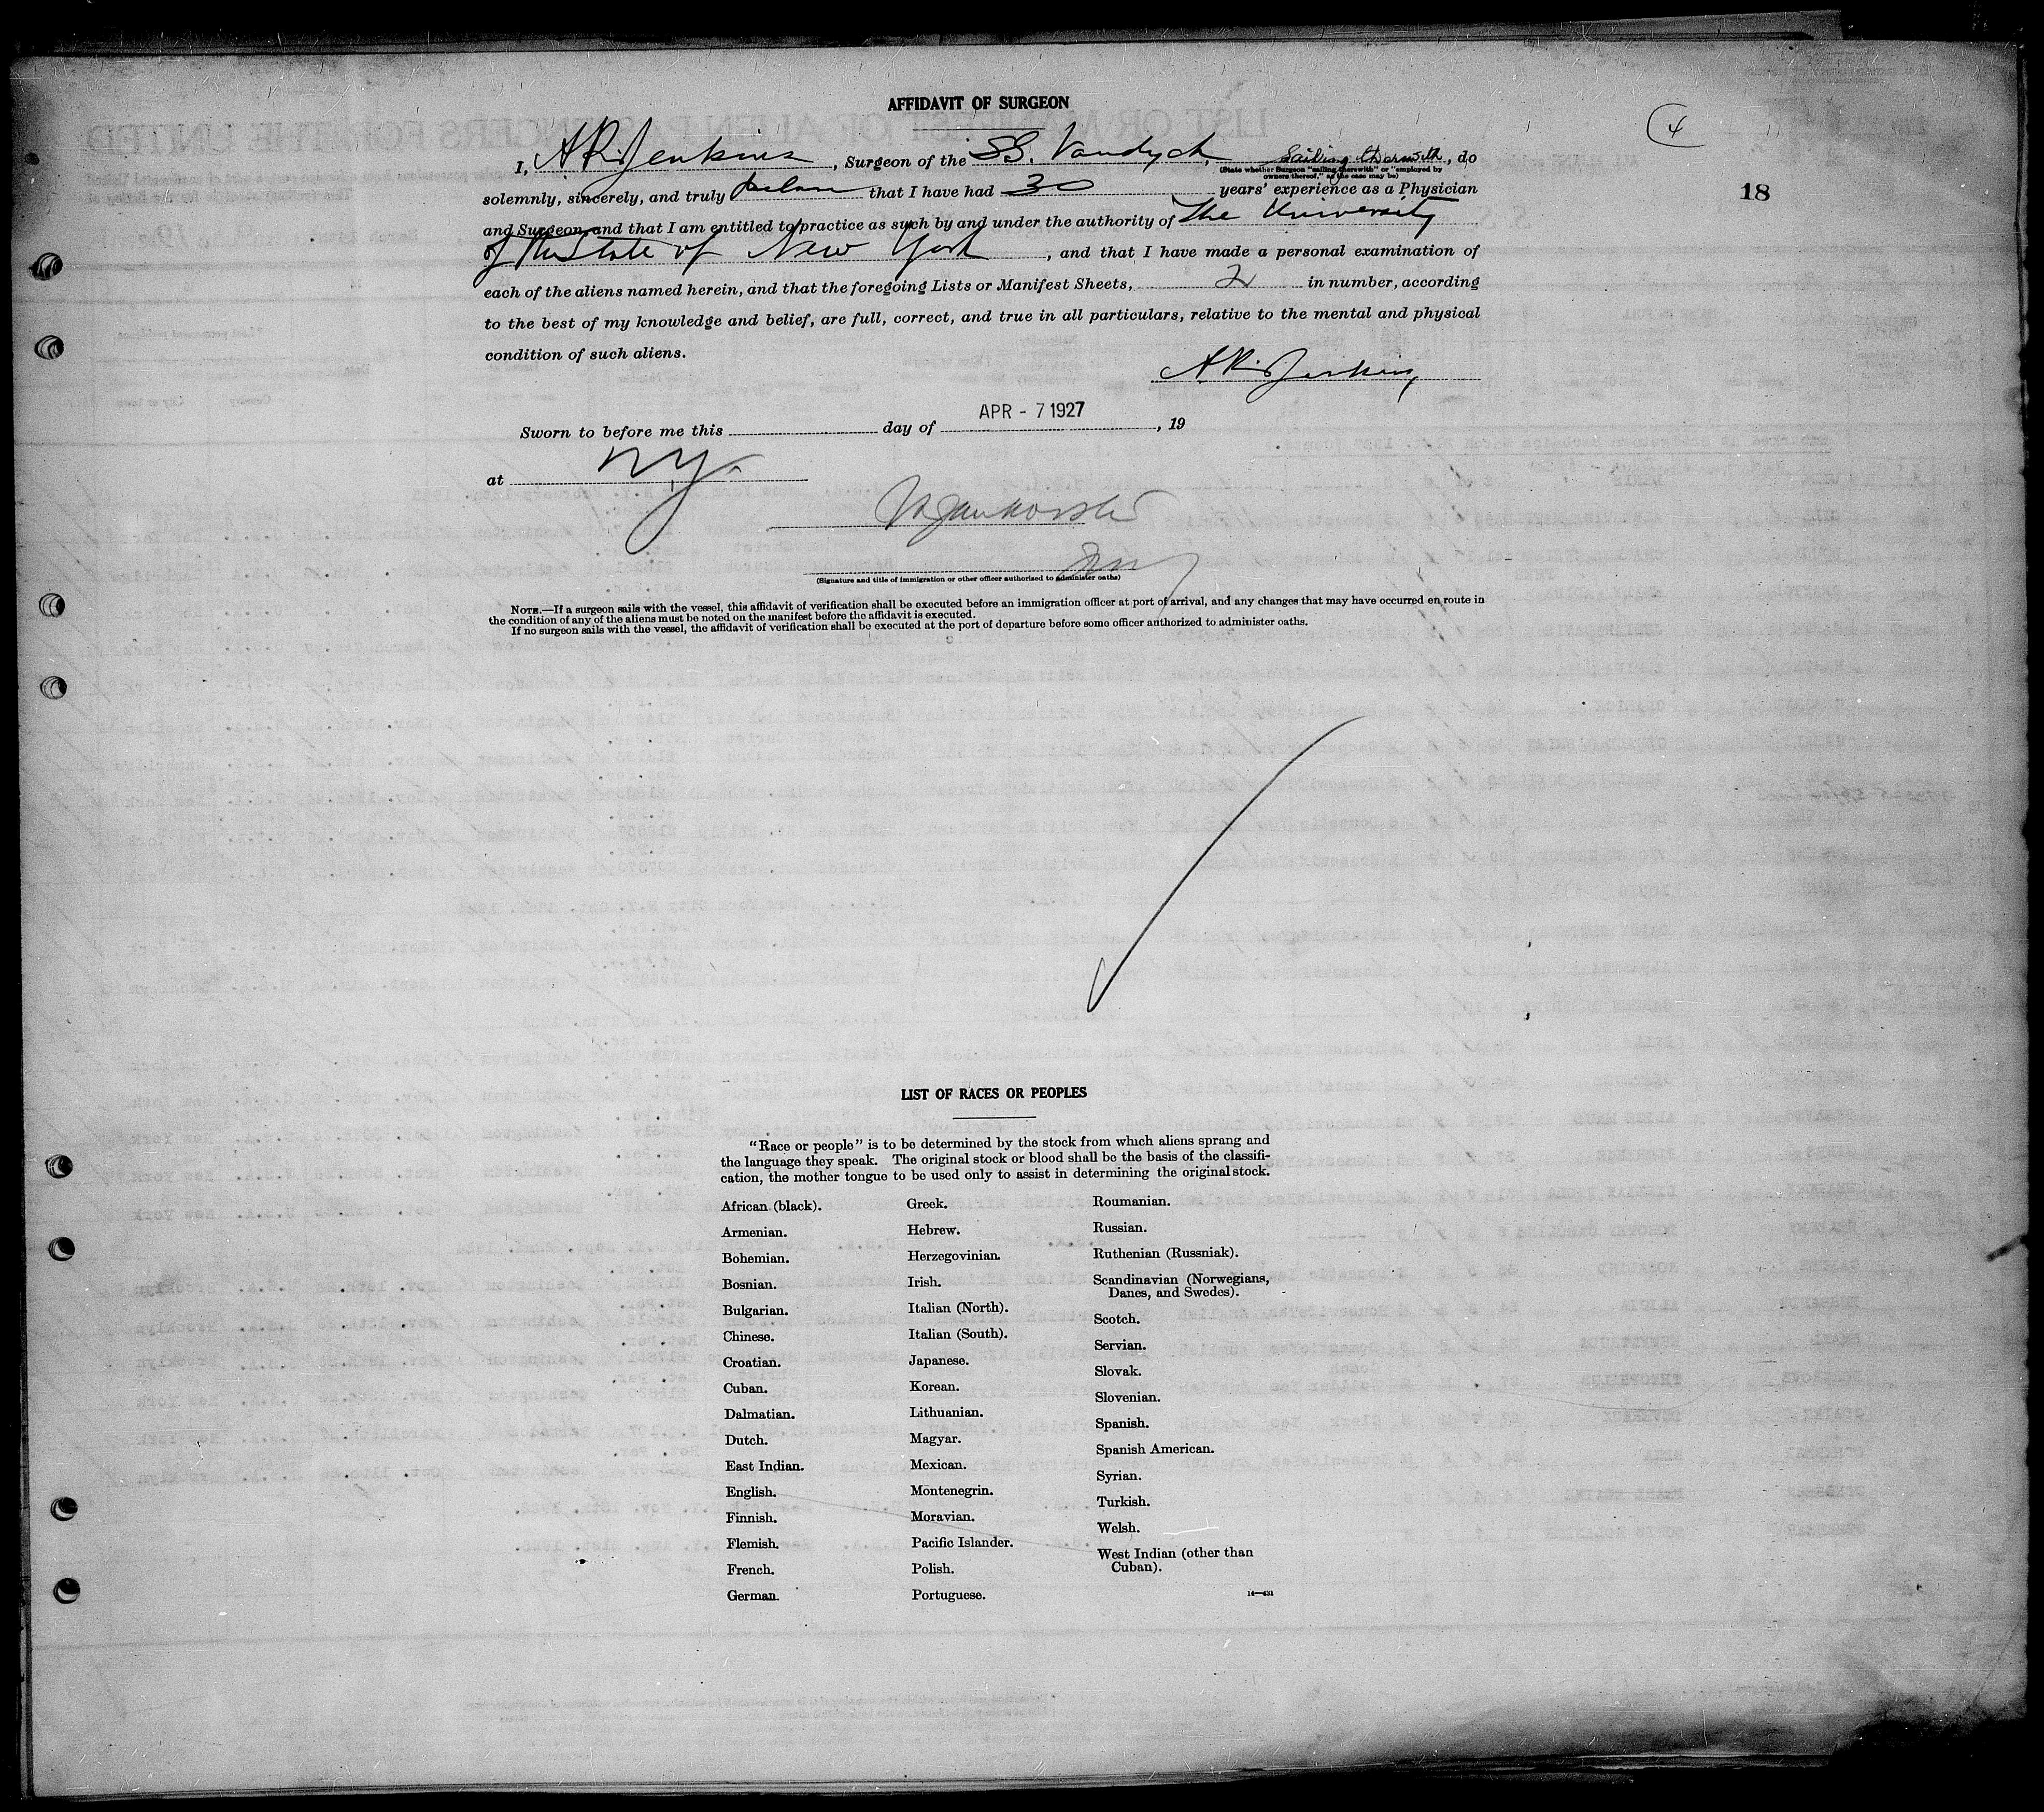 AFFIDAVIT OF SURGEON
4
18
I, A R Jenkins, Surgeon of the SS. Vandyck, Sailing therewith, do
(State whether Surgeon "sailing therewith" or "employed by
owners thereof," as the case may be)
solemnly, sincerely, and truly declare that I have had 30 years' experience as a Physician
and Surgeon and that I am entitled to practice as such by and under the authority of The University
of the State of New York, and that I have made a personal examination of
each of the aliens named herein, and that the foregoing Lists or Manifest Sheets, 2 in number, according
to the best of my knowledge and belief, are full, correct, and true in all particulars, relative to the mental and physical
condition of such aliens.
A R Jenkins
Sworn to before me this day of APR - 7 1927, 19
at N.Y.
(Signature and title of immigration or other officer authorized to administer oaths)
NOTE.—If a surgeon sails with the vessel, this affidavit of verification shall be executed before an immigration officer at port of arrival, and any changes that may have occurred en route in
the condition of any of the aliens must be noted on the manifest before the affidavit is executed.
If no surgeon sails with the vessel, the affidavit of verification shall be executed at the port of departure before some officer authorized to administer oaths.
LIST OF RACES OR PEOPLES
"Race or people" is to be determined by the stock from which aliens sprang and
the language they speak. The original stock or blood shall be the basis of the classifi-
cation, the mother tongue to be used only to assist in determining the original stock.
African (black).
Armenian.
Bohemian.
Bosnian.
Bulgarian.
Chinese.
Croatian.
Cuban.
Dalmatian.
Dutch.
East Indian.
English.
Finnish.
Flemish.
French.
German.
Greek.
Hebrew.
Herzegovinian.
Irish.
Italian (North).
Italian (South).
Japanese.
Korean.
Lithuanian.
Magyar.
Mexican.
Montenegrin.
Moravian.
Pacific Islander.
Polish.
Portuguese.
Roumanian.
Russian.
Ruthenian (Russniak).
Scandinavian (Norwegians,
Danes, and Swedes).
Scotch.
Servian.
Slovak.
Slovenian.
Spanish.
Spanish American.
Syrian.
Turkish.
Welsh.
West Indian (other than
Cuban).
14—431